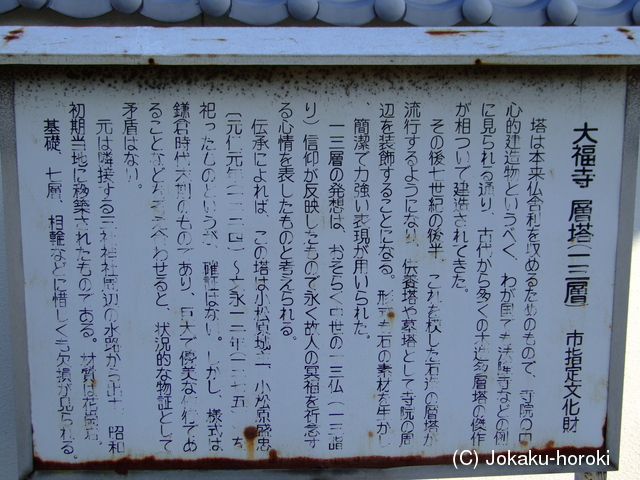 大福寺 層塔(十三層) 市指定文化財
塔は本来仏舎利を収めるためのもので、寺院の中
心的建造物というべく、わが国でも法隆寺などの例
に見られる通り、古代から多くの木造多層塔の傑作
が相ついで建造されてきた。
その後七世紀の後半、これを模した石造の層塔が
流行するようになり、供養塔や墓塔として寺院の周
辺を装飾することになる。形式も石の素材を生かし
、簡潔で力強い表現が用いられた。
十三層の発想は、おそらく中世の十三仏(十三詣
り)信仰が反映したもので永く故人の冥福を祈念す
る心情を表したものと考えられる。
伝承によれば、この塔は小松原城主、小松原盛忠
(元仁元年(一二二四)～文永十二年(一二七五)
祀ったものというべく確証はない。しかし、様式は
鎌倉時代 のものであり、巨大で優美な であ
ることなど 考えあわせると、状況的な物証として
矛盾はない。
元は隣接する三社神社周辺の水路から出土 昭和
初期当地に移築されたものである。材質は花崗岩
基礎、七層、相輪などに惜しくも欠損が見られる。
(C) Jokaku-horoki